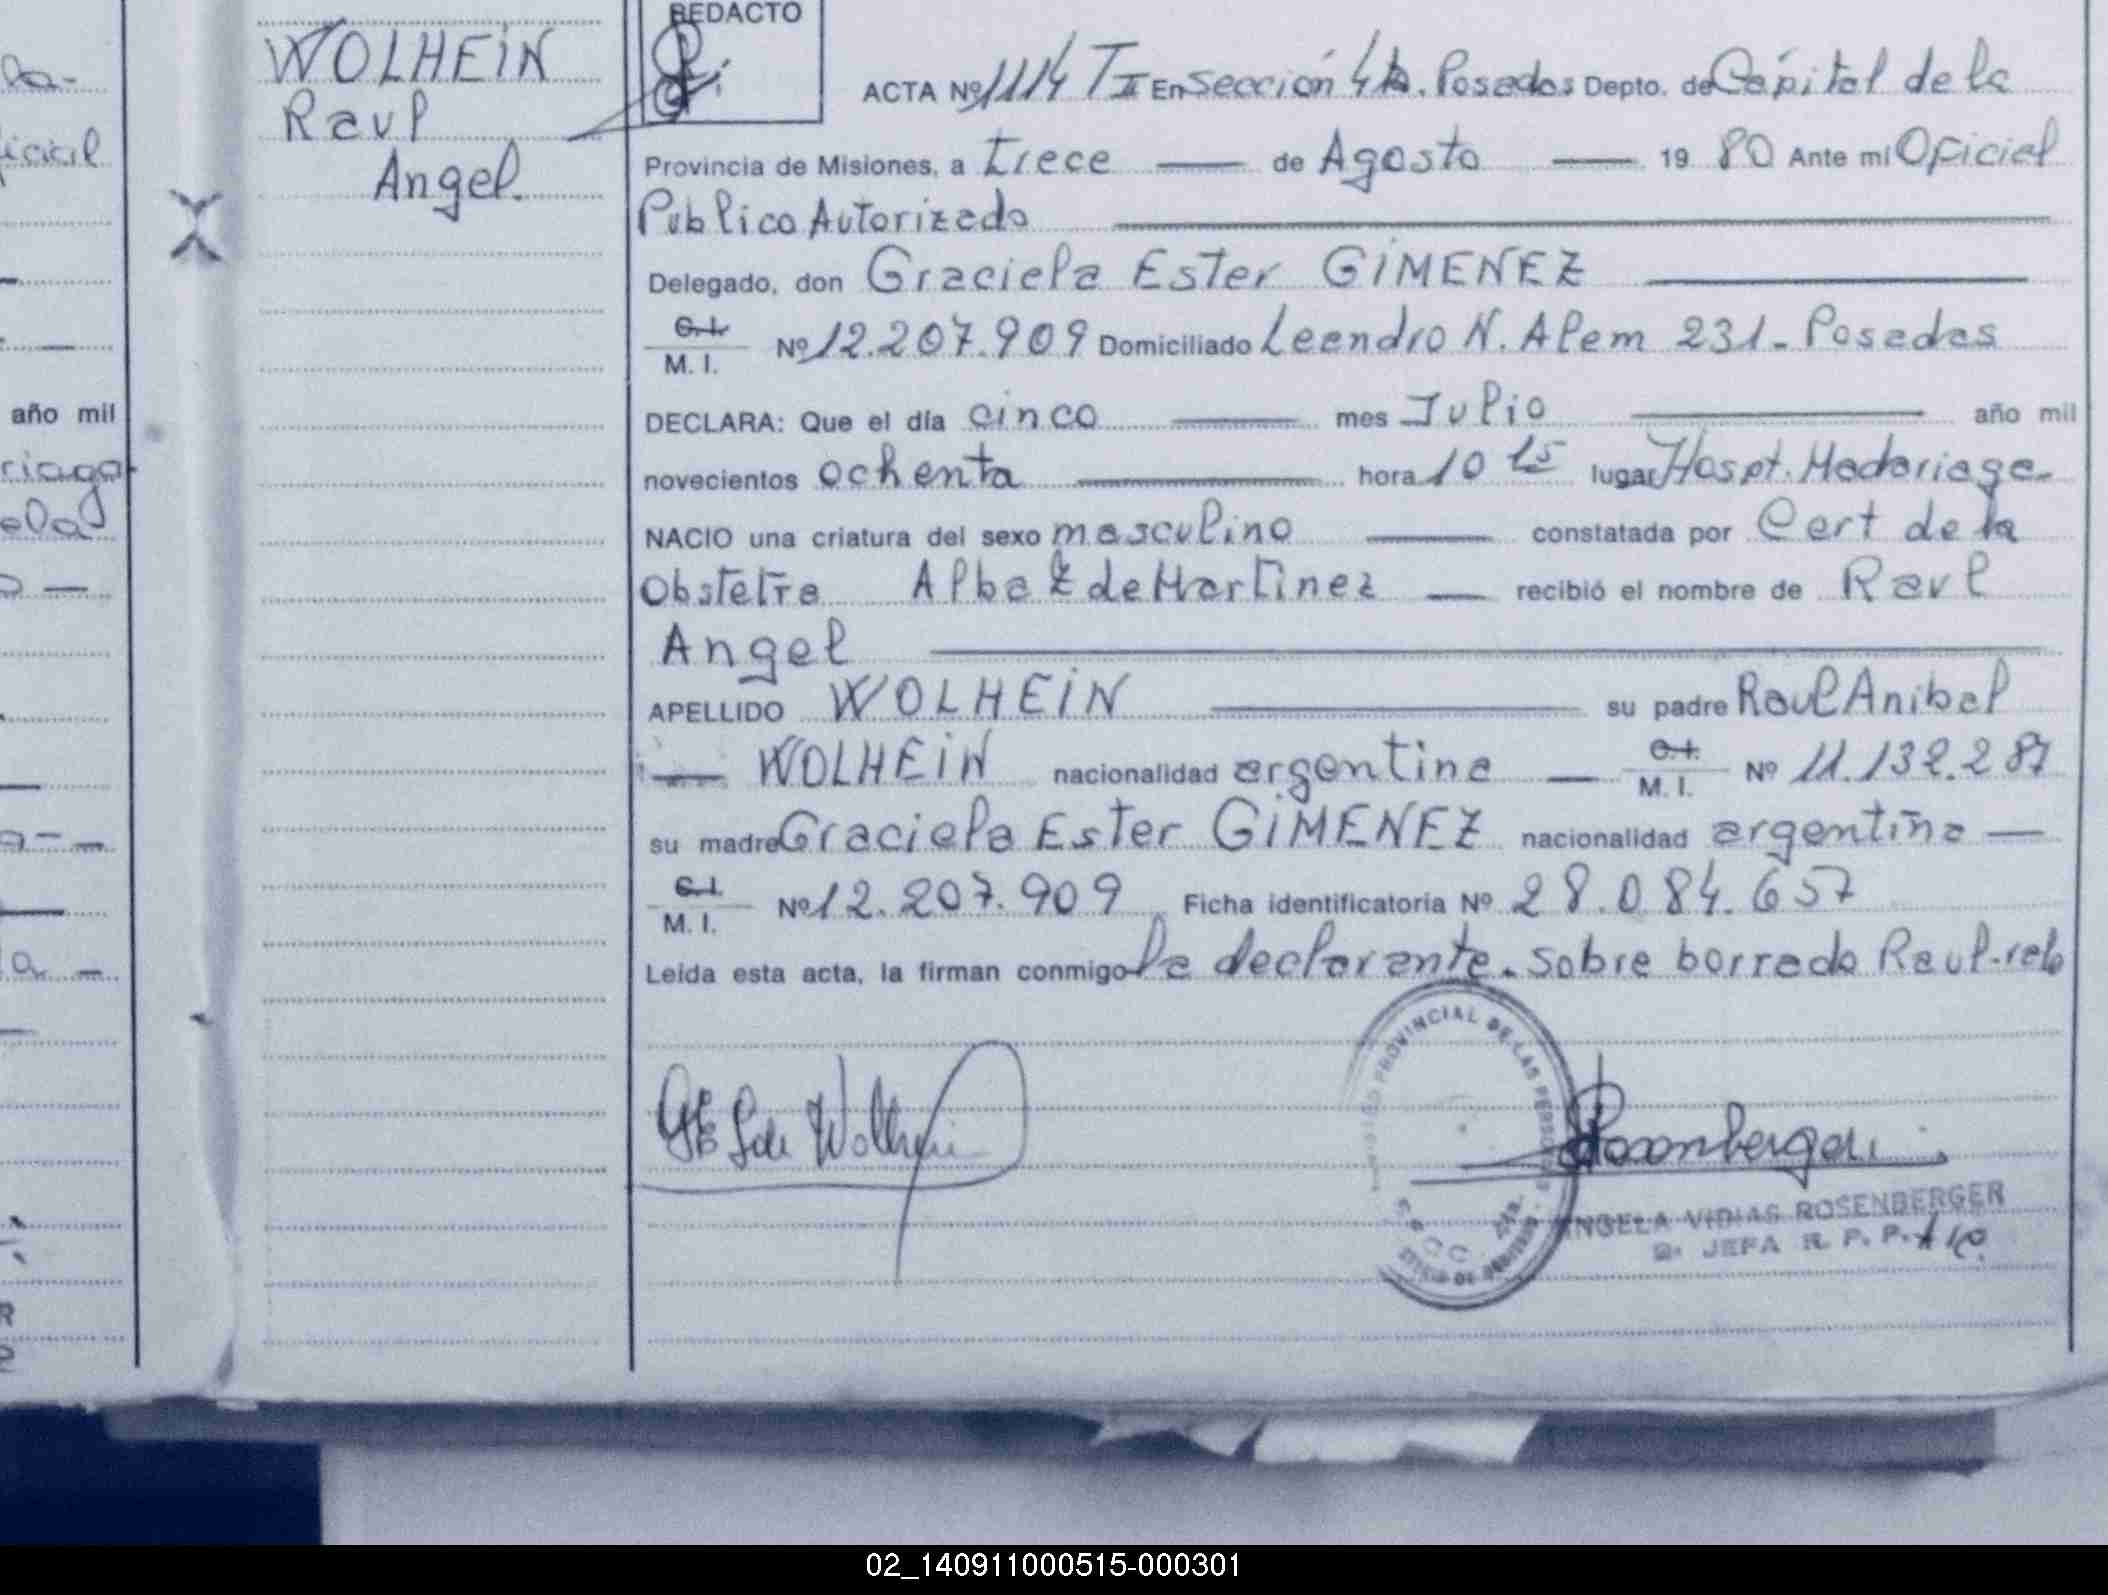 WOLHEIN
Raul
Angel.
REDACTO
ACTA Nº 1114 T II En Sección 4ta. Posadas Depto. de Capital de la
Provincia de Misiones, a trece — de Agosto — 19 80 Ante mi Oficial
Publico Autorizado
Delegado, don Graciela Ester GIMENEZ
C.I. M. I. Nº 12.207.909 Domiciliado Leandro N. Alem 231 - Posadas
DECLARA: Que el día cinco — mes Julio — año mil
novecientos ochenta — hora 10 15 lugar Hospt. Madariaga-
NACIO una criatura del sexo masculino — constatada por Cert de la
Obstetra Alba Z de Martinez — recibió el nombre de Raul
Angel
APELLIDO WOLHEIN — su padre Raul Anibal
— WOLHEIN nacionalidad argentina — C.I. M. I. Nº 11.132.287
su madre Graciela Ester GIMENEZ nacionalidad argentina —
C.I. M. I. Nº 12.207.909 Ficha identificatoria Nº 28.084.657
Leída esta acta, la firman conmigo la declarante. sobre borrado Raul-vale
PROVINCIAL DE LAS PERSONAS
ANGELA VIDIAS ROSENBERGER
JEFA R. P. P.
año mil
riaga
icial
la-
ela
02_140911000515-000301